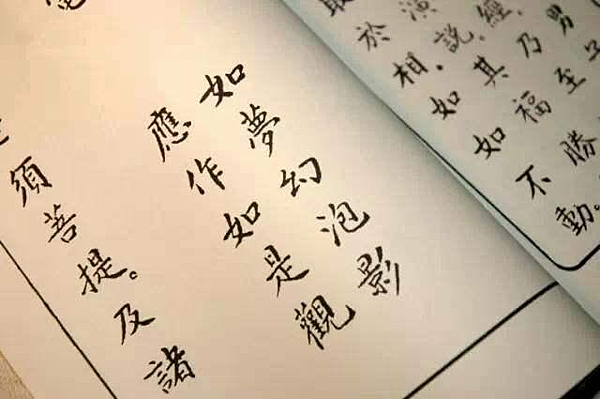 男子
經乃至
演說。其福勝
取於相。如如不動。
如夢幻泡影
應作如是觀
須菩提。及諸